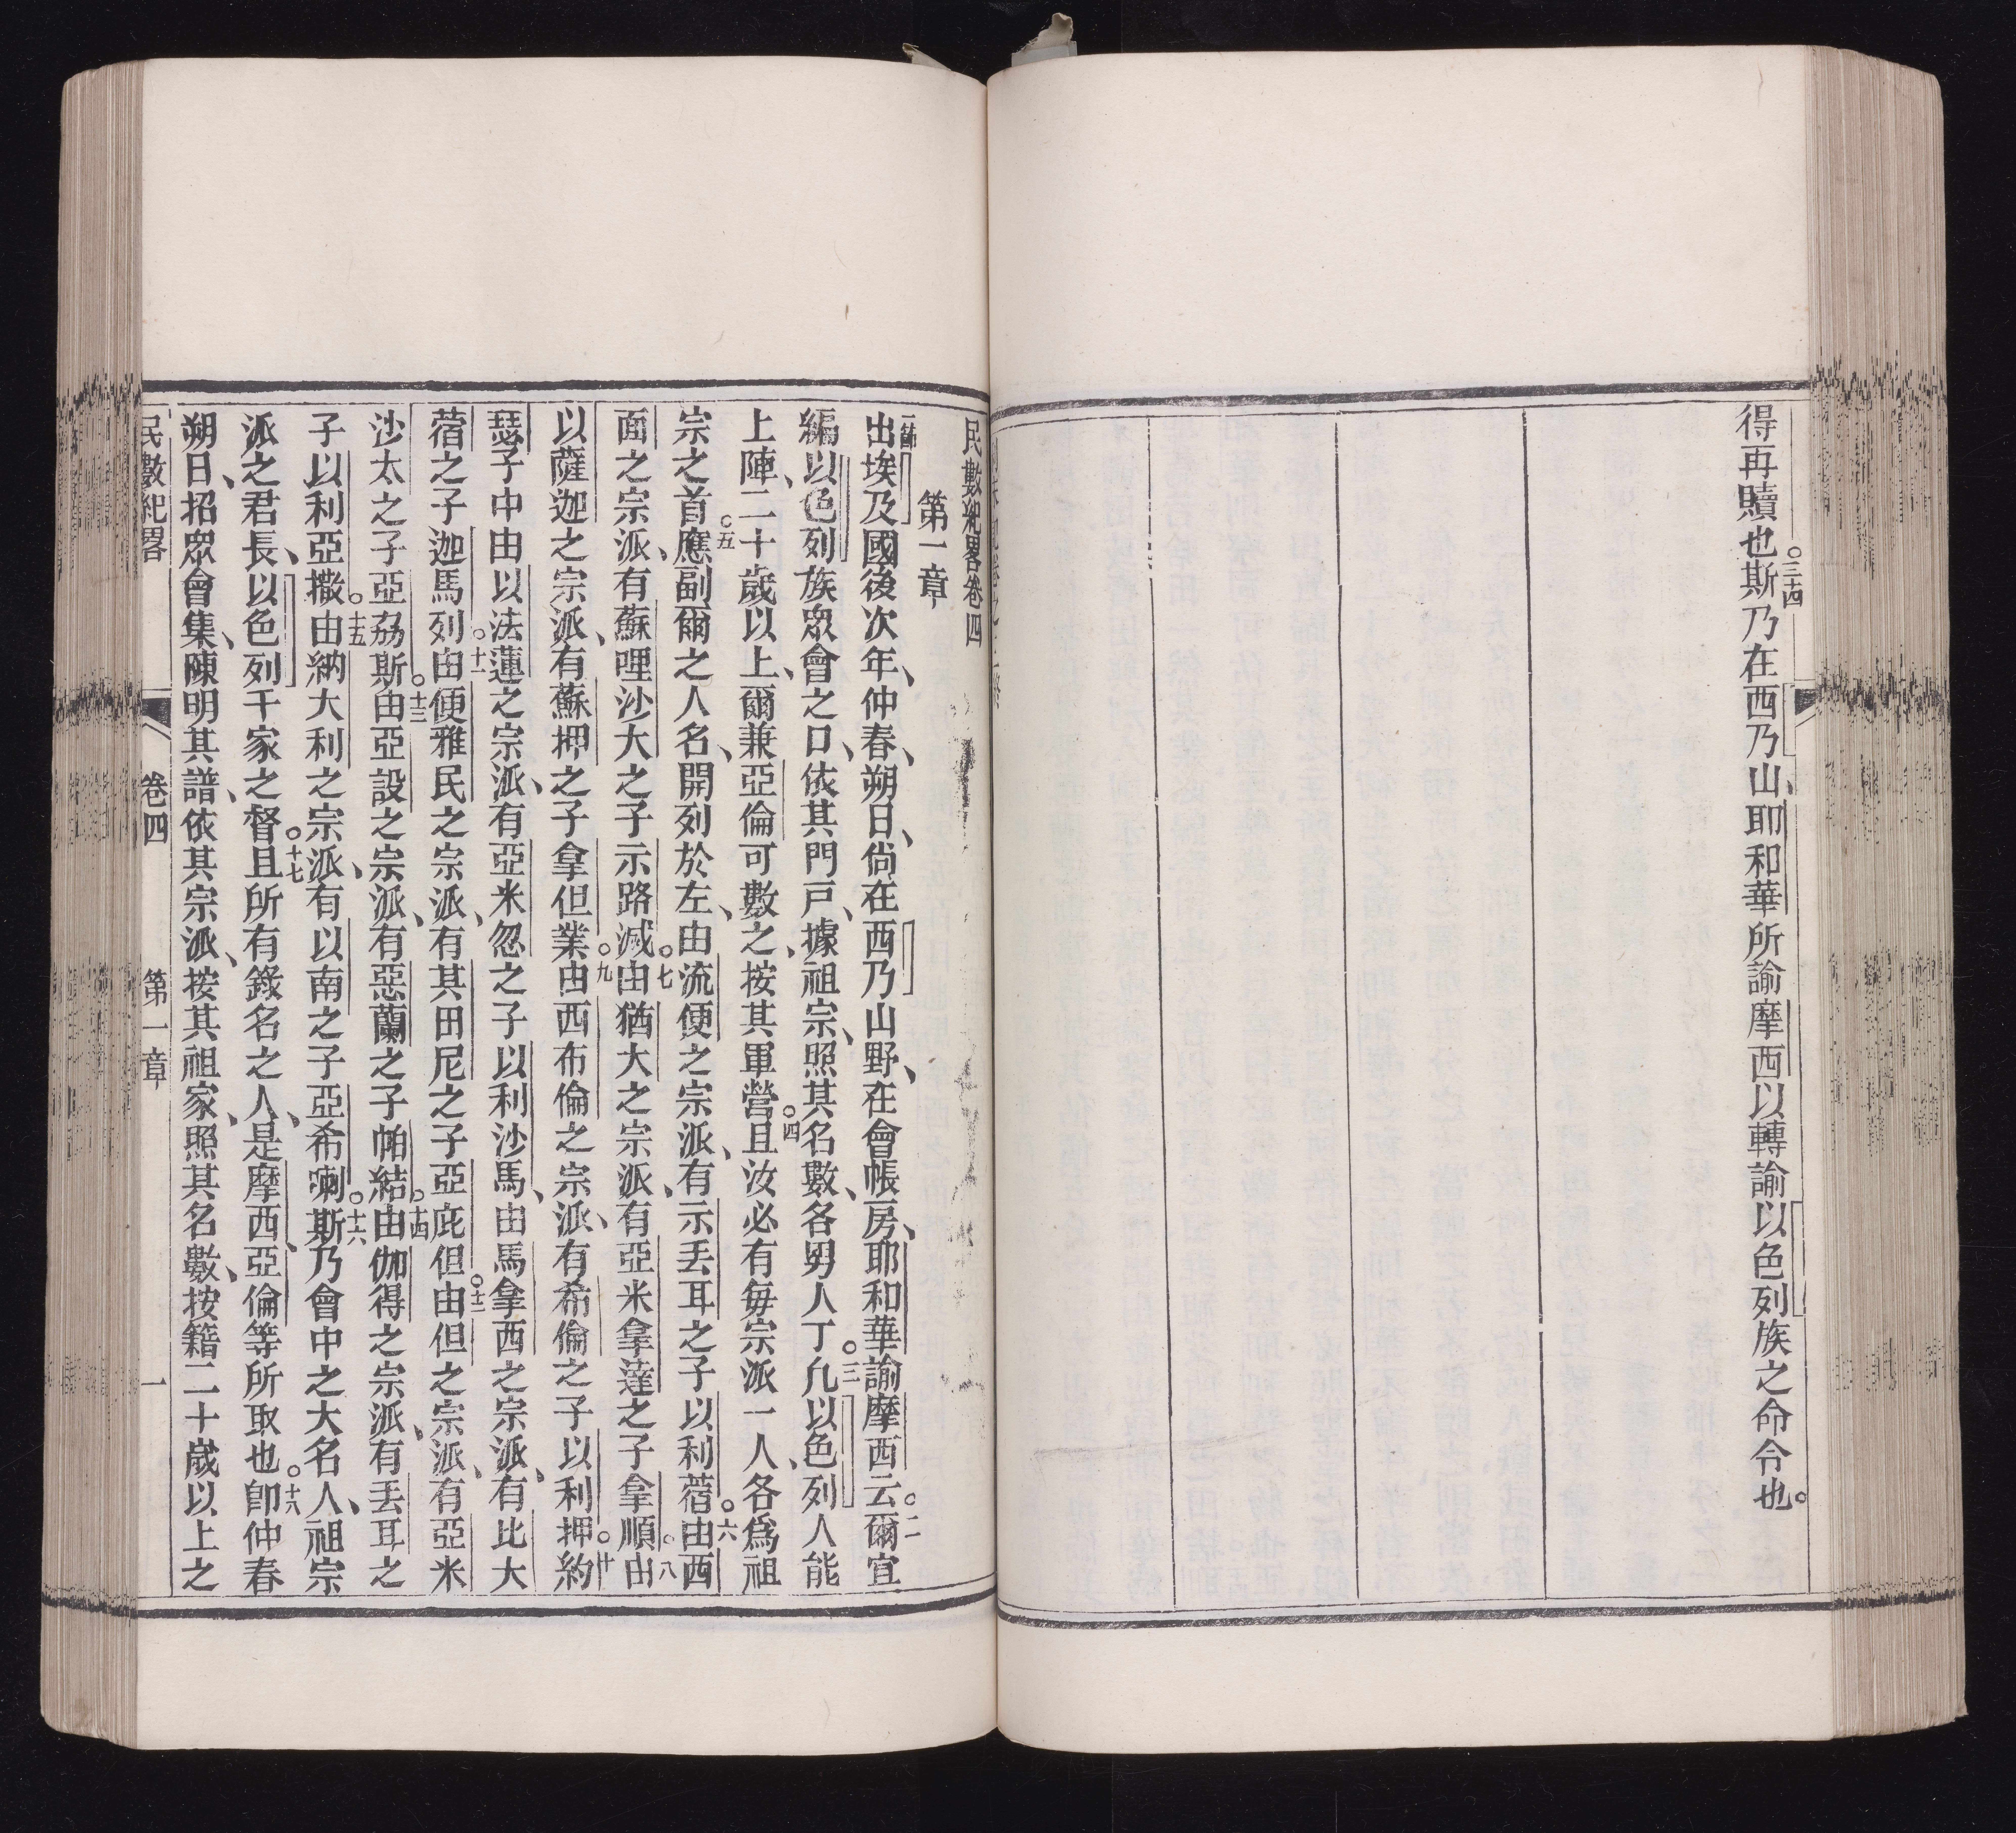 得再贖也。三十四斯乃在西乃山、耶和華所諭摩西以轉諭以色列族之命令也。
民數紀畧卷四
第一章
出埃及國後次年、仲春、朔日、尙在西乃山野、在會帳房、耶和華諭摩西云。二爾宜
編以色列族眾會之口、依其門戶、據祖宗、照其名數、各男人丁。三凡以色列人能
上陣、二十歲以上、爾兼亞倫可數之、按其軍營。四且汝必有每宗派一人、各爲祖
宗之首。五應副爾之人名、開列於左、由流便之宗派、有示丢耳之子以利蓿。六由西
面之宗派、有蘇哩沙大之子示路滅。七由猶大之宗派、有亞米拿達之子拿順。八由
以薩迦之宗派、有蘇押之子拿但業。九由西布倫之宗派、有希倫之子以利押。十約
瑟子中由以法蓮之宗派、有亞米忽之子以利沙馬、由馬拿西之宗派、有比大
蓿之子迦馬列。十一由便雅民之宗派、有其田尼之子亞庇但。十二由但之宗派、有亞米
沙太之子亞茘斯。十三由亞設之宗派、有惡蘭之子帕結。十四由伽得之宗派、有丢耳之
子以利亞撒。十五由納大利之宗派、有以南之子亞希喇。十六斯乃會中之大名人、祖宗
派之君長、以色列千家之督。十七且所有錄名之人、是摩西、亞倫等所取也。十八卽仲春
朔日、招眾會集、陳明其譜、依其宗派、按其祖家、照其名數、按籍二十歲以上之
民數紀畧 卷四 第一章 一